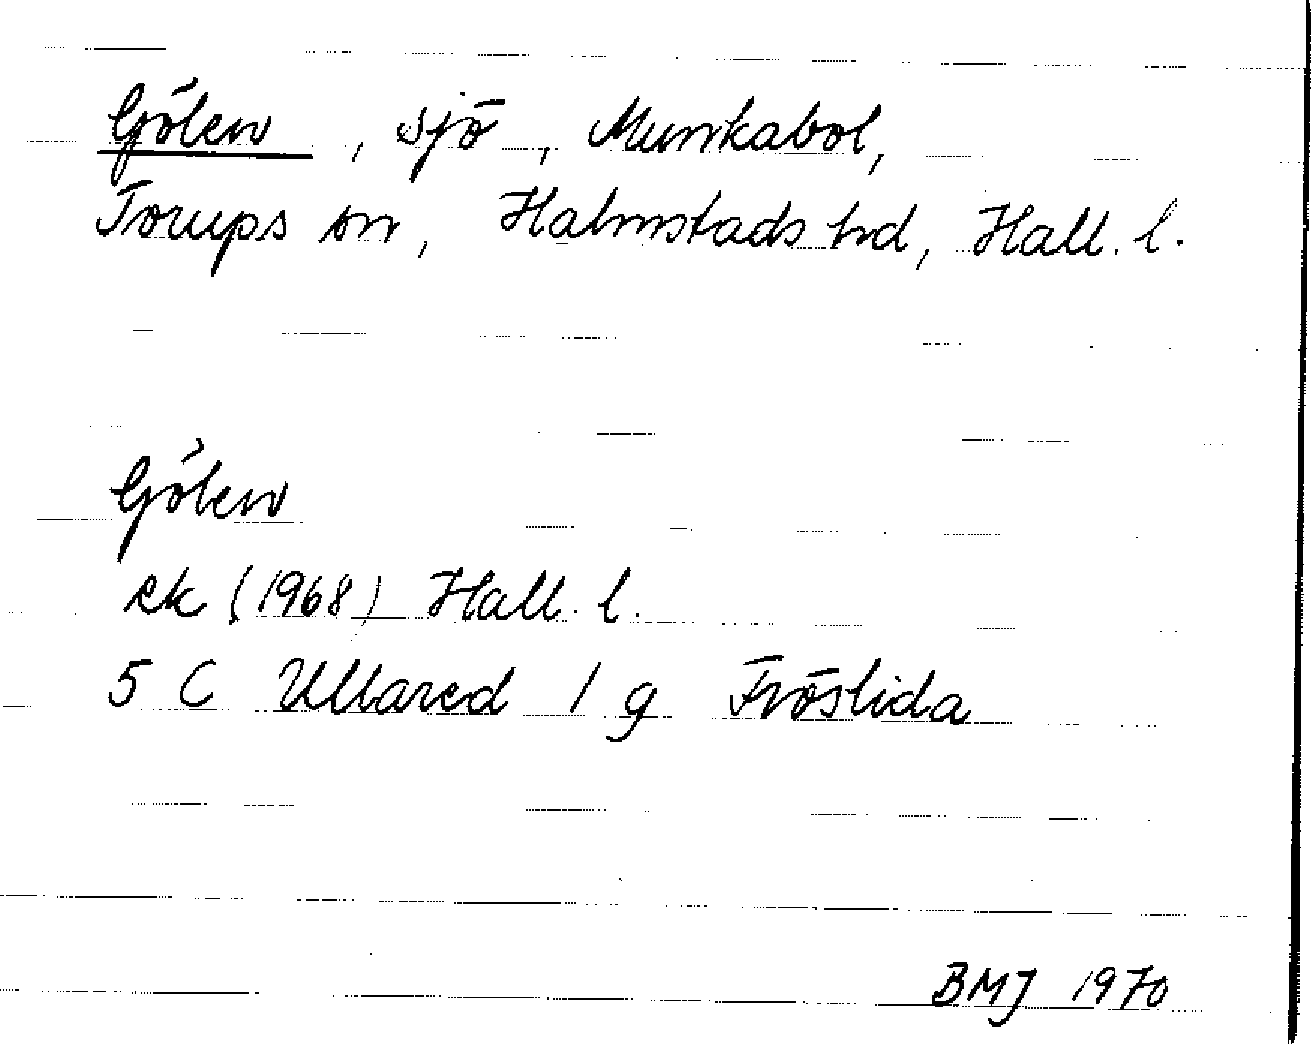 Gölen, sjö, Munkabol,
Torups sn, Halmstads hd, Hall. l.
Gölen
ek (1968) Hall. l.
5 C Ullared 1 g Fröslida
BMJ 1970